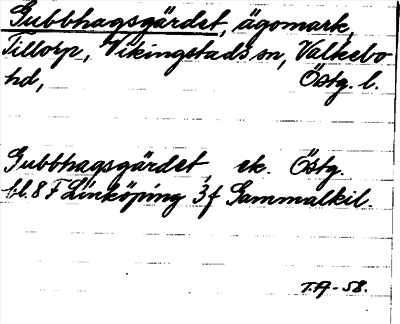 Gubbhagsgärdet, ägomark,
Tillorp, Vikingstads sn, Valkebo
hd, Östg. l.
Gubbhagsgärdet, ek. Östg.
bl. 8 F Linköping 3 f Gammalkil.
T.A-58.